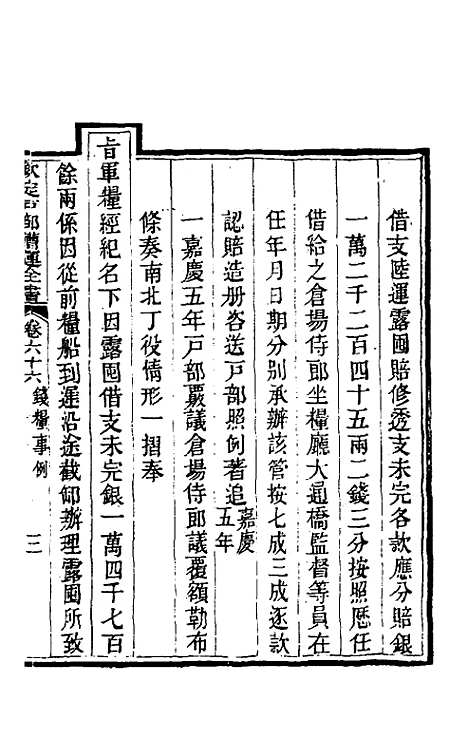 借支陸運露囤賠修透支未完各款應分賠銀
一萬二千二百四十五兩二錢三分按照歷任
借給之倉場侍郎坐糧廳大通橋監督等員在
任年月日期分別承辦該管按七成三成逐款
認賠造册咨送戸部照例著追嘉慶五年
一嘉慶五年戸部覈議倉場侍郎議覆額勒布
條奏南北丁役情形一摺奉
旨軍糧經紀名下因露囤借支未完銀一萬四千七百
餘兩係因從前糧船到遲沿途截卸辦理露囤所致
欽定戸部漕運全書 卷六十六 錢糧事例 三